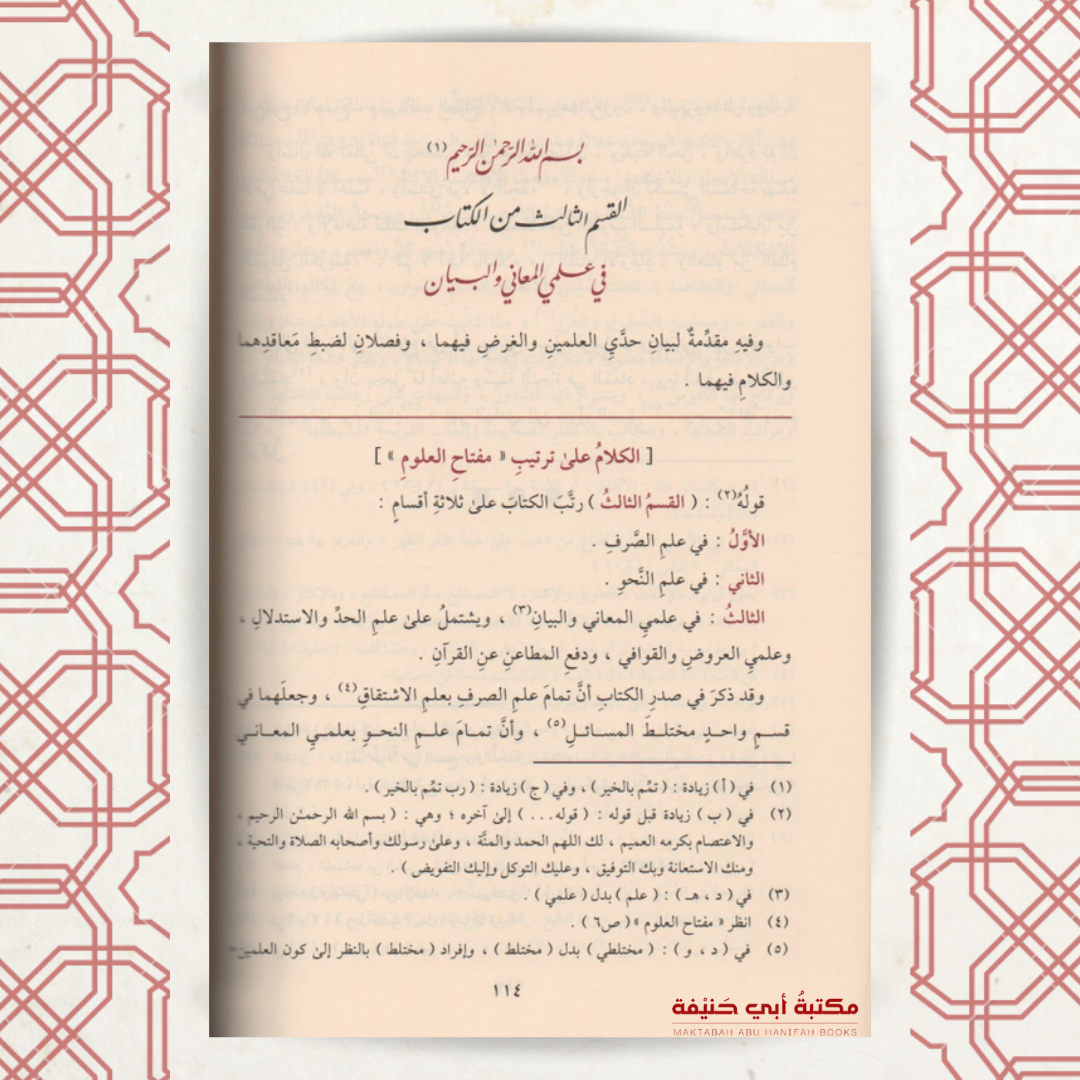 بسم الله الرحمن الرحيم (١)
القسم الثالث من الكتاب
في علمي المعاني والبيان
وفيه مقدِّمةٌ لبيانِ حدَّيِ العلمينِ والغرضِ فيهما ، وفصلانِ لضبطِ مَعاقدِهما
والكلامِ فيهما .
[ الكلامُ علىٰ ترتيبِ « مفتاحِ العلومِ » ]
قولُهُ(٢) : ( القسمُ الثالثُ ) رتَّبَ الكتابَ علىٰ ثلاثةِ أقسامٍ :
الأوَّلُ : في علمِ الصَّرفِ .
الثاني : في علمِ النَّحوِ .
الثالثُ : في علميِ المعاني والبيانِ(٣) ، ويشتملُ علىٰ علمِ الحدِّ والاستدلالِ ،
وعلميِ العروضِ والقوافي ، ودفعِ المطاعنِ عنِ القرآنِ .
وقد ذكرَ في صدرِ الكتابِ أنَّ تمامَ علمِ الصرفِ بعلمِ الاشتقاقِ(٤) ، وجعلَهما في
قسمٍ واحدٍ مختلطَ المسائلِ(٥) ، وأنَّ تمامَ علمِ النحوِ بعلميِ المعاني
(١) في ( أ ) زيادة : ( تمِّم بالخير ) ، وفي ( ج ) زيادة : ( رب تمِّم بالخير ) .
(٢) في ( ب ) زيادة قبل قوله : ( قوله... ) إلىٰ آخره ؛ وهي : ( بسم الله الرحمٰن الرحيم ،
والاعتصام بكرمه العميم ، لك اللهم الحمد والمنَّة ، وعلىٰ رسولك وأصحابه الصلاة والتحية ،
ومنك الاستعانة وبك التوفيق ، وعليك التوكل وإليك التفويض ) .
(٣) في ( د ، هـ ) : ( علم ) بدل ( علمي ) .
(٤) انظر « مفتاح العلوم » ( ص٦ ) .
(٥) في ( د ، و ) : ( مختلطي ) بدل ( مختلط ) ، وإفراد ( مختلط ) بالنظر إلىٰ كون العلمين-
١١٤
مكتبةُ أبي حَنيْفة
MAKTABAH ABU HANIFAH BOOKS